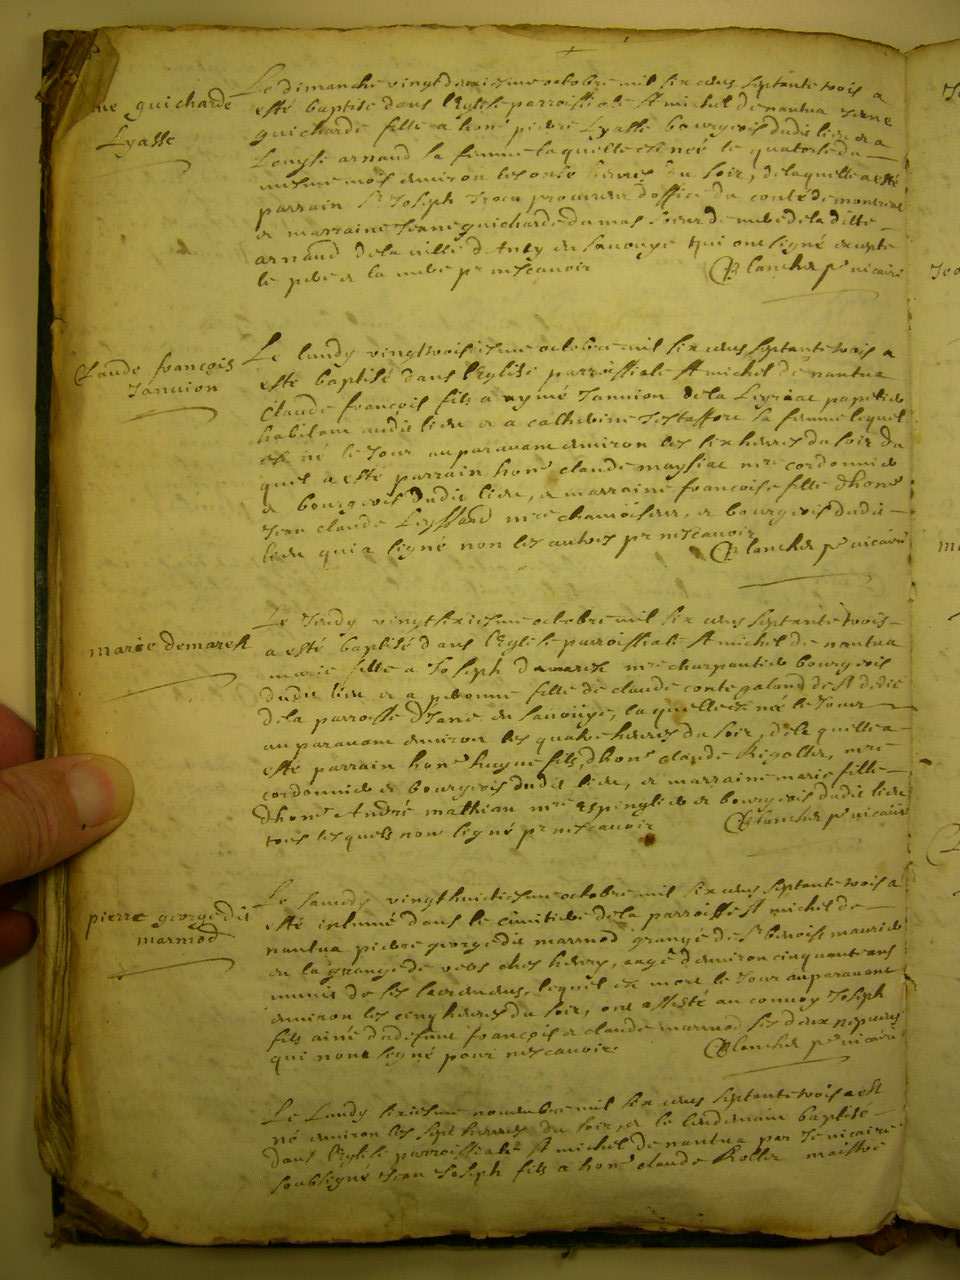 ne guicharde
Lyasse
Le dimanche vingt deuxiesme octobre mil six cens septante trois a
esté baptisé dans l'Eglise parroissiale St michel de nantua Jeane
guicharde fille a hone pierre Lyasse bourgeois dudit lieu et a
Louyse arnaud sa femme laquelle est née le quatorze du
mesme mois environ les onse heures du soir, de laquelle a esté
parrain Sr Joseph procureur d'office du conté de montreal
et marraine Jeane guicharde dumas de la ditte
arnaud de la ville d'Anty en Sauoye qui ont signé excepté
le pere et la mere pr nescauoir Blanchet pr uicaire
Claude françois
Januion
Le lundy vingt troisiesme octobre mil six cens septante trois a
esté baptisé dans l'Eglise parroissiale St michel de nantua
Claude françois fils a aymé Januion de la papetier
habitant audit lieu et a catherine sa femme lequel
est né le Jour auparauant enuiron les six heures du soir du
quel a esté parrain hone claude maysiat mre cordonnier
et bourgeois dudit lieu, et marraine françoise fille d'hone
Jean claude mre chamoiseur, et bourgeois dudit
lieu qui a signé non les autres pr nescauoir Blanchet pr uicaire
marie demarest
Le Jeudy vingt sixiesme octobre mil six cens septante trois
a esté baptisé dans l'Eglise parroissiale St michel de nantua
marie fille a Joseph demarest mre charpentier bourgeois
dudit lieu et a pernonne fille de claude conte galand de St
de la parroisse en Sauoye, laquelle est née le Jour
auparauant enuiron les quatre heures du soir, de la quelle a
esté parrain hone hugue fils d'hone claude Rigollet, mre
cordonnier et bourgeois dudit lieu, et marraine marie fille
d'hone André mathian mre Espinglier et bourgeois dudit lieu
tous lesquels n'ont signé pr nescauoir Blanchet pr uicaire
pierre george dit
marmod
Le Samedy vingt huictiesme octobre mil six cens septante trois a
esté inhumé dans le cimitiere de la parroisse St michel de
nantua pierre george dit marmod granger de Sr benoist maurier
en la grange de vers chez heures, aagé d'enuiron cinquante ans
muni de ses sacremens, lequel est mort le Jour auparauant
enuiron les cinq heures du soir, ont assisté au conuoy Joseph
fils ainé du defunt françois et claude marmod ses deux nepueus
qui n'ont signé pour nescauoir Blanchet pr uicaire
Le Lundy sixiesme nouembre mil six cens septante trois a est
né enuiron les sept heures du soir, et le lendemain baptisé
dans l'Eglise parroissiale St michel de nantua par Je uicaire
soubsigné Jean Joseph fils a hone claude Rollet maistre